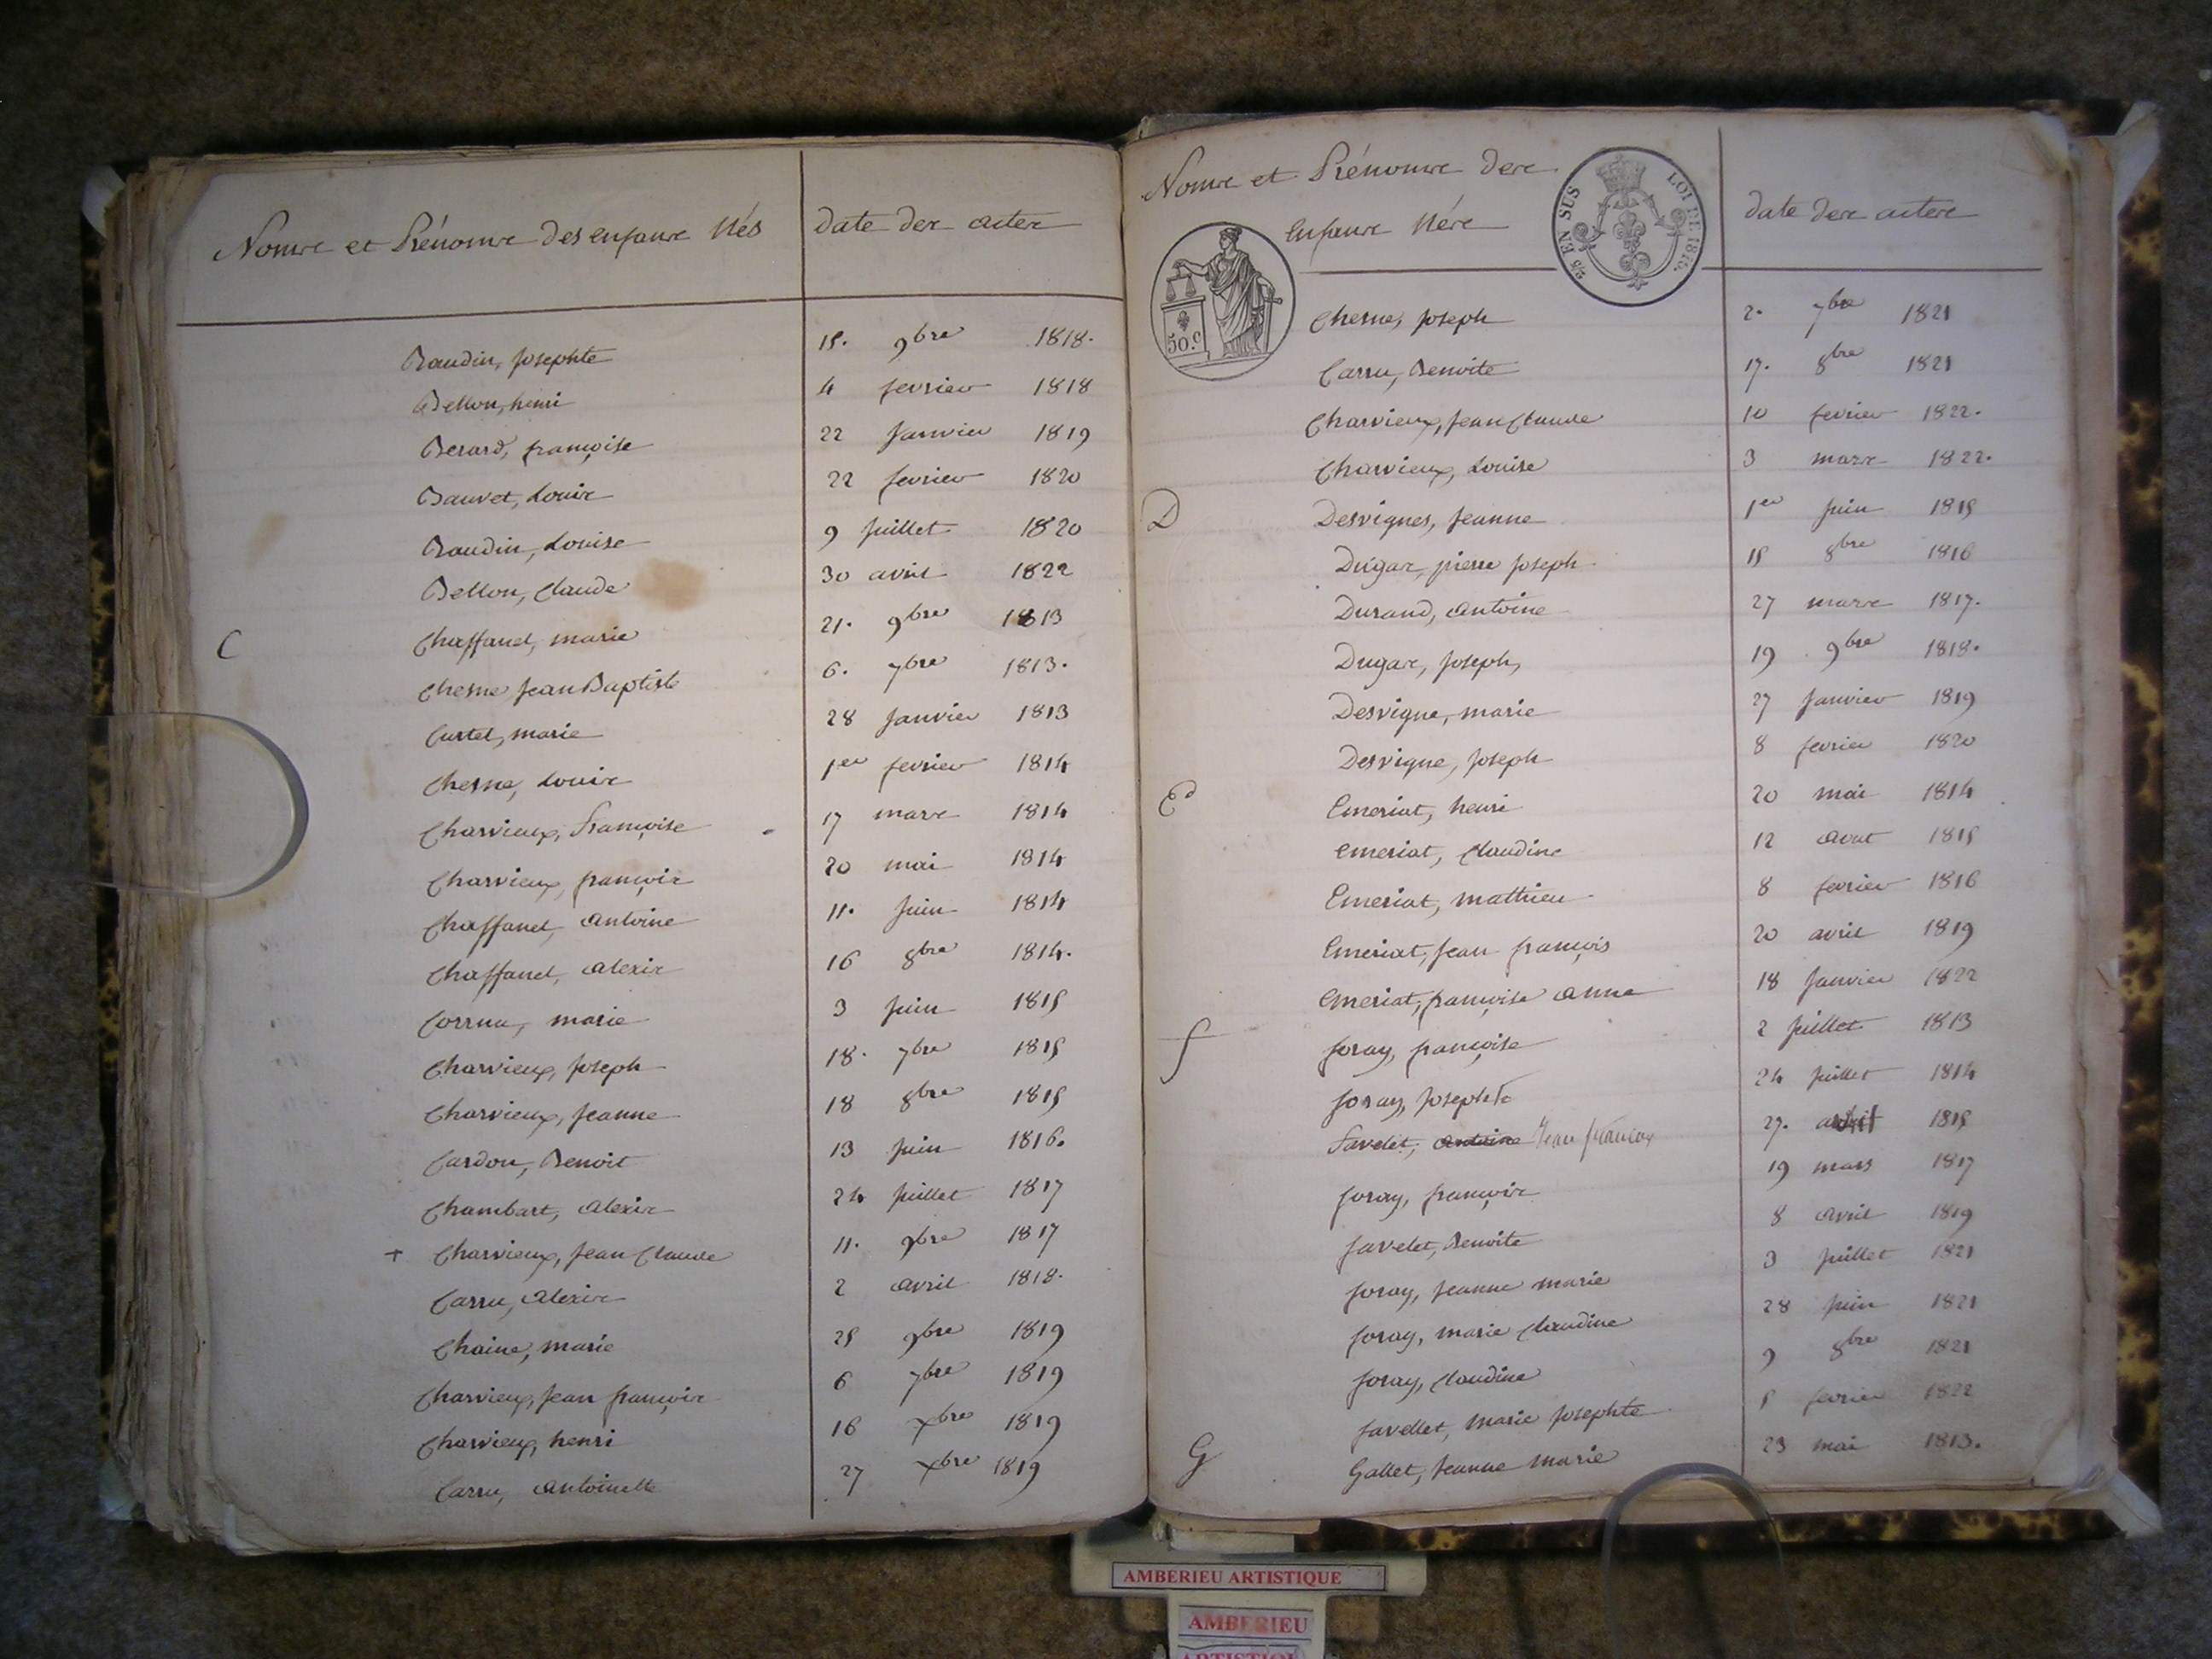 Noms et Prénoms des enfans Nés date des actes
Baudin, Josephte 15. 9bre 1818.
Bellon, henri 4 fevrier 1818
Berard, françoise 22 Janvier 1819
Bauvet, Louis 22 fevrier 1820
Baudin, Louise 9 Juillet 1820
Bellon, Claude 30 avril 1822
C Chaffanel, marie 21. 9bre 1813
Chesne Jean Baptiste 6. 7bre 1813.
Curtel, marie 28 Janvier 1813
Chesne, Louis 1er fevrier 1814
Charvieux, Françoise 17 mars 1814
Charvieux, françois 20 mai 1814
Chaffanel, Antoine 11. Juin 1814
Chaffanel, alexis 16 8bre 1814.
marie 3 Juin 1815
Charvieux, Joseph 18. 7bre 1815
Charvieux, Jeanne 18 8bre 1815
Cardon, Benoit 13 Juin 1816.
Chambart, alexis 24 Juillet 1817
+ Charvieux, Jean Claude 11. 9bre 1817
Carru, Alexis 2 avril 1818.
Chaine, marie 25 9bre 1819
Charvieux, Jean françois 6 7bre 1819
Charvieux, henri 16 Xbre 1819
Carru, Antoinette 27 Xbre 1819
Noms et Prénoms des
enfans Nés date des actes
EN SUS LOI DE 1816.
50.c
Chesne, Joseph 2. 7bre 1821
Carru, Benoite 17. 8bre 1821
Charvieux, Jean Claude 10 fevrier 1822.
Charvieux, Louise 3 mars 1822.
D Desvignes, Jeanne 1er Juin 1815
Dugas, pierre Joseph 15 8bre 1816
Durand, Antoine 27 mars 1817.
Dugas, Joseph, 19 9bre 1818.
Desvigne, marie 27 Janvier 1819
Desvigne, Joseph 8 fevrier 1820
E Emeriat, henri 20 mai 1814
emeriat, Claudine 12 aout 1815
Emeriat, mathieu 8 fevrier 1816
Emeriat, Jean françois 20 avril 1819
Emeriat, françoise anne 18 Janvier 1822
f foray, françoise 2 Juillet 1813
foray, Josephte 24 Juillet 1814
Favelet, antoine Jean françois 27. avril 1815
foray, françois 19 mars 1817
favelet, Benoite 8 avril 1819
foray, Jeanne marie 3 Juillet 1821
foray, marie Claudine 28 Juin 1821
foray, Claudine 9 8bre 1821
favellet, Marie Josephte 5 fevrier 1822
G Gallet, Jeanne marie 23 mai 1813.
AMBERIEU ARTISTIQUE
AMBERIEU
ARTISTIQUE